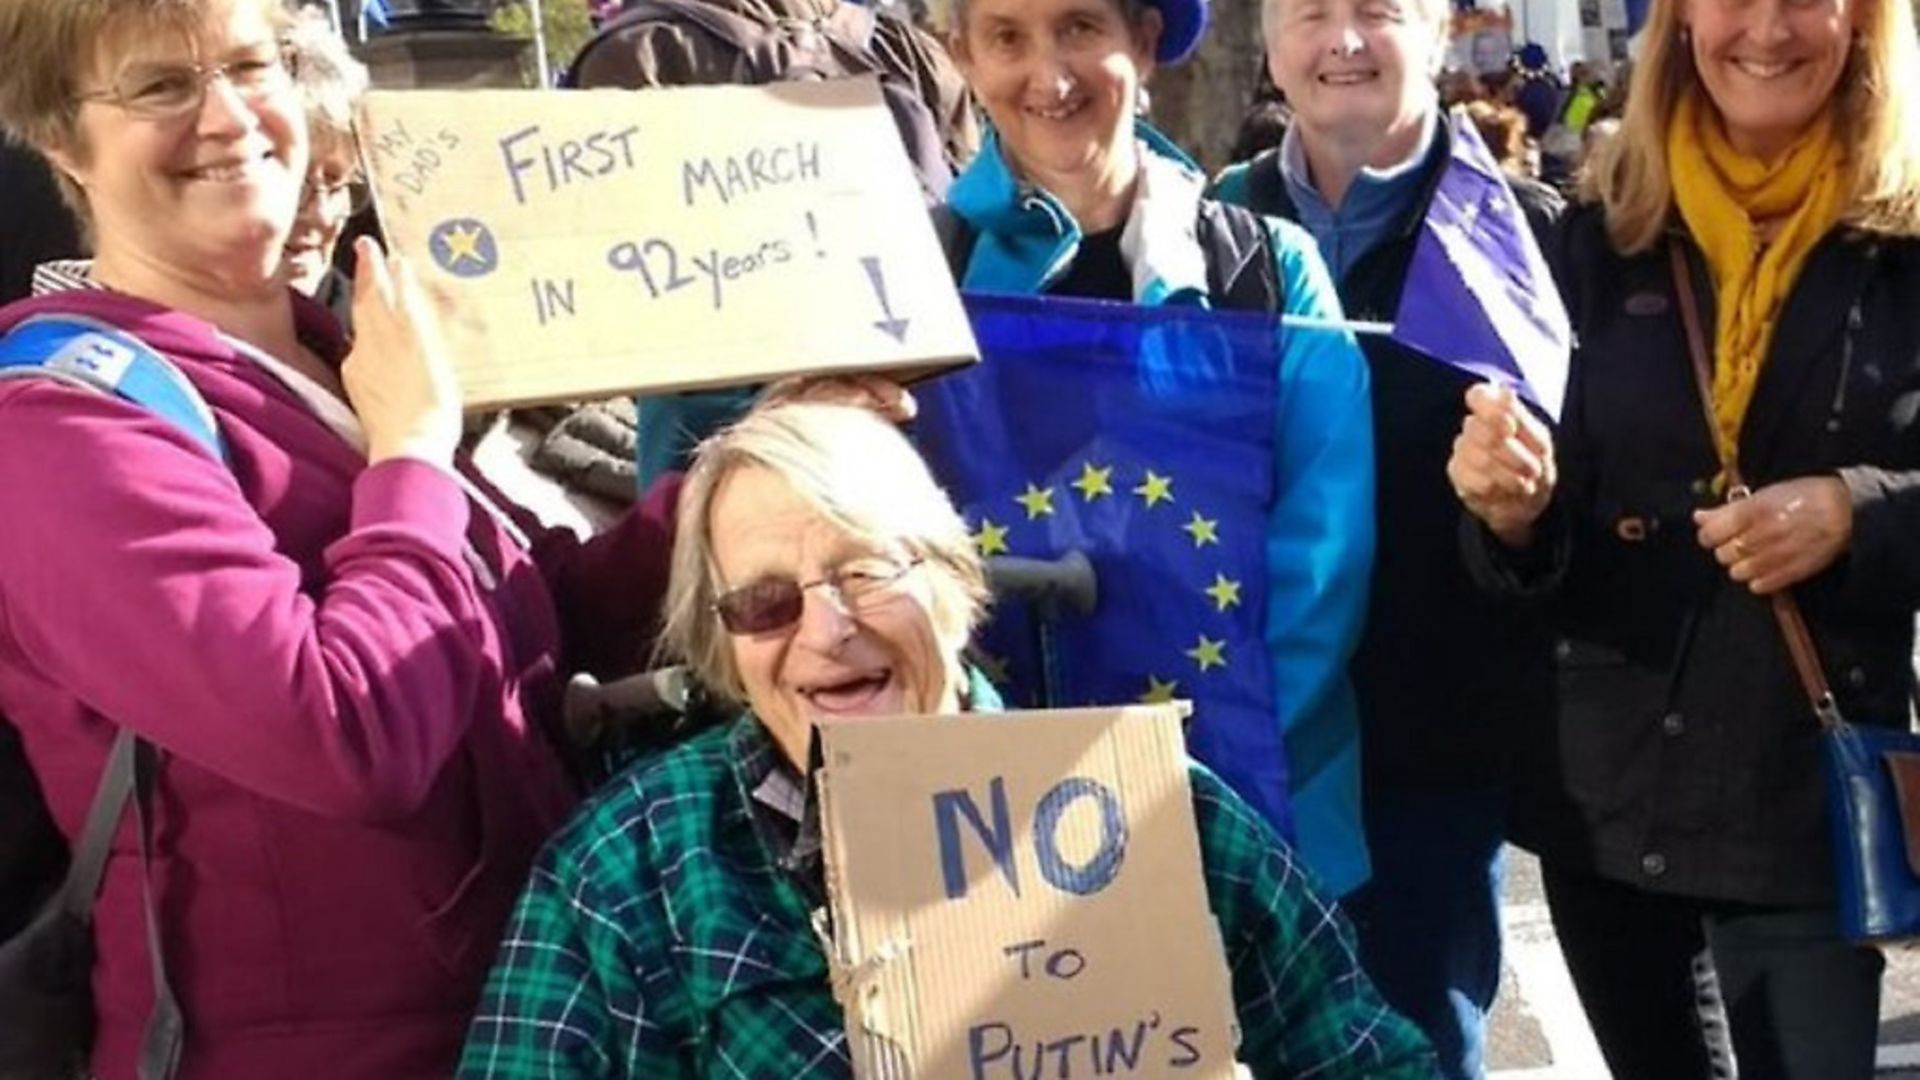 MY DAD'S
FIRST MARCH
IN 92 years!
NO
TO
PUTIN'S